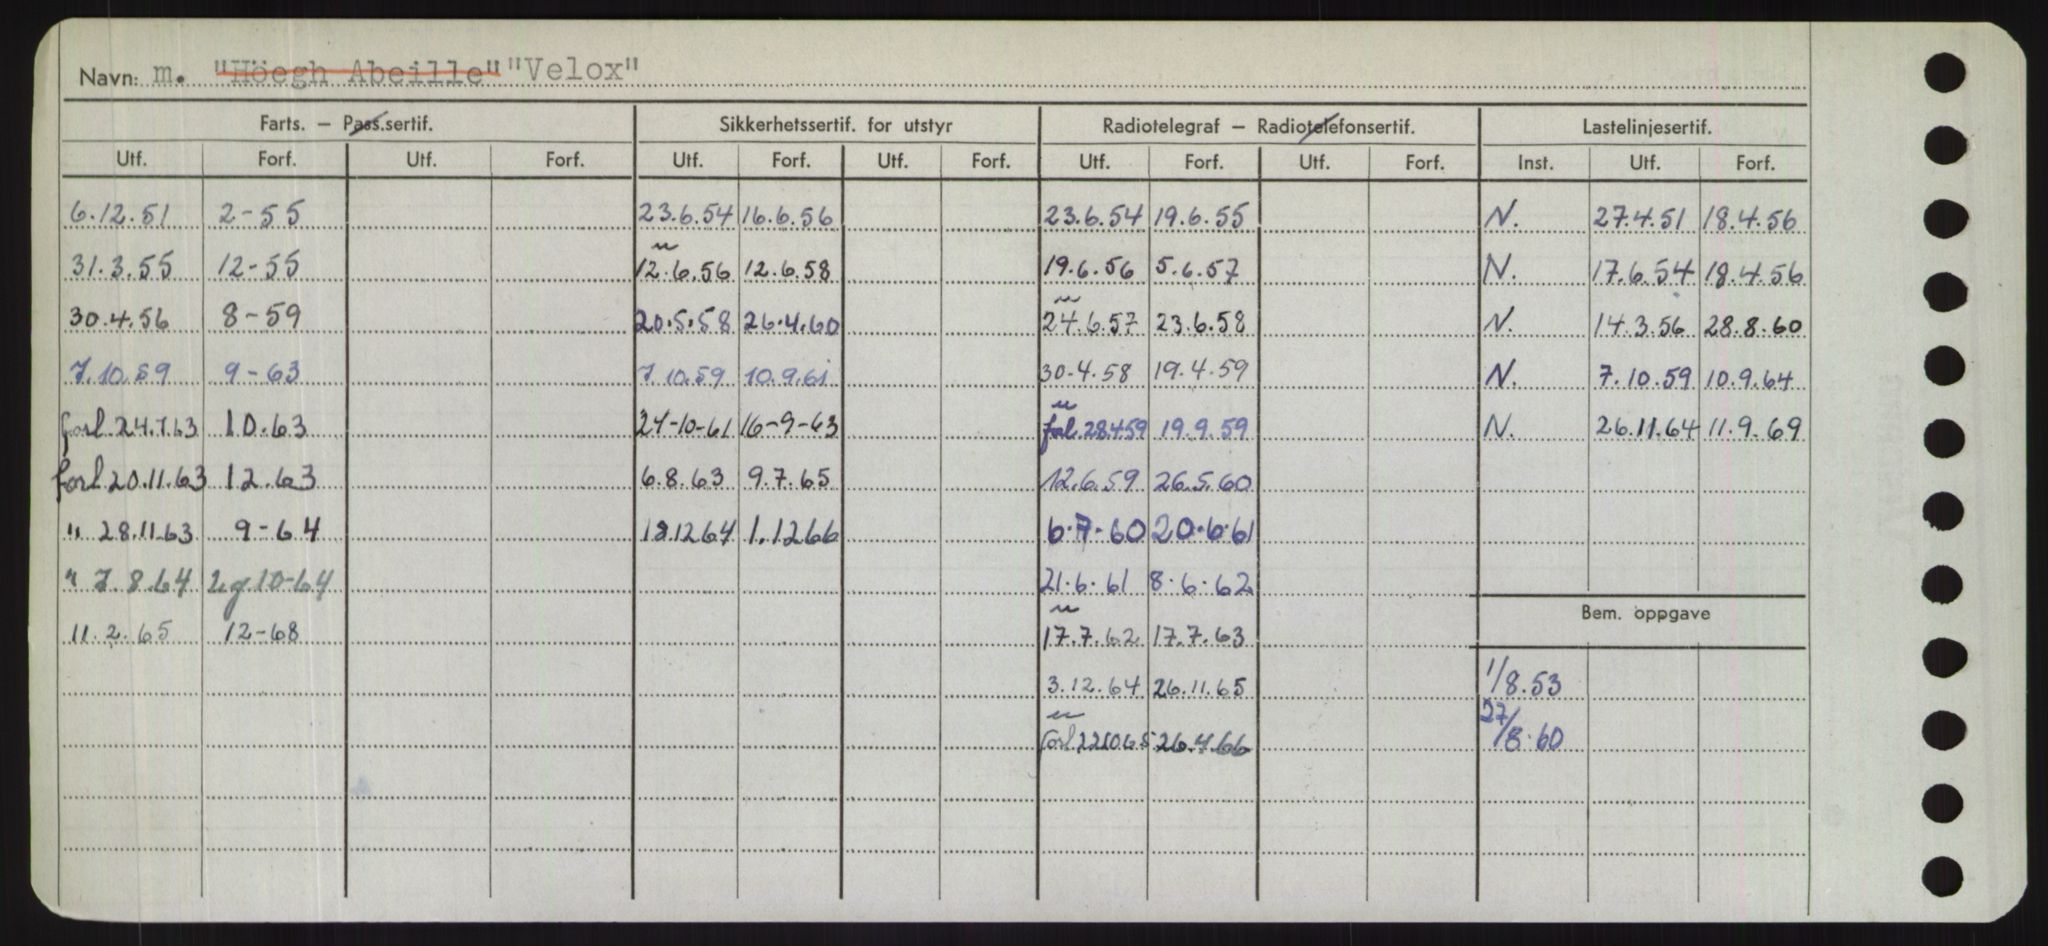 Navn: m. "Höegh Abeille" "Velox"
Farts. – Pass.sertif. Sikkerhetssertif. for utstyr Radiotelegraf – Radiotelefonsertif. Lastelinjesertif.
Utf. Forf. Utf. Forf. Utf. Forf. Utf. Forf. Utf. Forf. Utf. Forf. Inst. Utf. Forf.
6.12.51 2-55 23.6.54 16.6.56 23.6.54 19.6.55 N. 27.4.51 18.4.56
31.3.55 12-55 12.6.56 12.6.58 19.6.56 5.6.57 N. 17.6.54 18.4.56
30.4.56 8-59 20.5.58 26.4.60 24.6.57 23.6.58 N. 14.3.56 28.8.60
7.10.59 9-63 7.10.59 10.9.61 30.4.58 19.4.59 N. 7.10.59 10.9.64
forl 24.7.63 10.63 24-10-61 16-9-63 forl. 28.4.59 19.9.59 N. 26.11.64 11.9.69
forl 20.11.63 12.63 6.8.63 9.7.65 12.6.59 26.5.60
" 28.11.63 9-64 18.12.64 1.12.66 6.7.60 20.6.61
" 7.8.64 10-64 21.6.61 8.6.62
Bem. oppgave
11.2.65 12-68 17.7.62 17.7.63
3.12.64 26.11.65 1/8.53
forl. 22.10.65 26.4.66 27/8.60